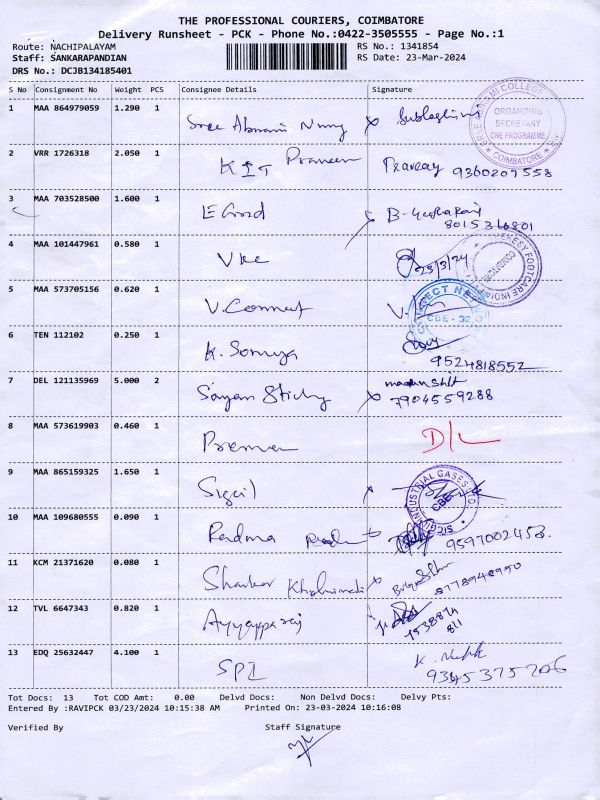 THE PROFESSIONAL COURIERS, COIMBATORE
Delivery Runsheet - PCK - Phone No.:0422-3505555 - Page No.:1
Route: NACHIPALAYAM RS No.: 1341854
Staff: SANKARAPANDIAN RS Date: 23-Mar-2024
DRS No.: DCJB134185401
S No Consignment No Weight PCS Consignee Details Signature
1 MAA 864979059 1.290 1
Sree Abirami
ORGANIZING
SECRETARY
ONE PROGRAMME
COIMBATORE
2 VRR 1726318 2.050 1
KIT Praveen Praveay 9360207558
3 MAA 703528500 1.600 1
8015316801
4 MAA 101447961 0.580 1
VKC 23/3/24
FOOTCARE INDIA
5 MAA 573705156 0.620 1
V. Connect V.
CONNECT
CBE - 32
6 TEN 112102 0.250 1
K. Somya 9524818552
7 DEL 121135969 5.000 2
Sayan 7904559288
8 MAA 573619903 0.460 1
Premer D/L
9 MAA 865159325 1.650 1
Sigil
INDUSTRIAL GASES
CBE
10 MAA 109680555 0.090 1
Padma 9597002453.
11 KCM 21371620 0.080 1
8778948990
12 TVL 6647343 0.820 1
Ayyappa raj
13 EDQ 25632447 4.100 1
SPI 9345375206
Tot Docs: 13 Tot COD Amt: 0.00 Delvd Docs: Non Delvd Docs: Delvy Pts:
Entered By :RAVIPCK 03/23/2024 10:15:38 AM Printed On: 23-03-2024 10:16:08
Verified By Staff Signature